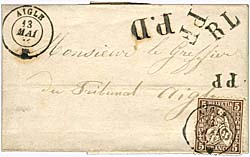 AIGLE
13
MAI
P.P.D
P.P.D
RL
PP
Monsieur le Greffier
du Tribunal
Aigle
AIGLE
5 5